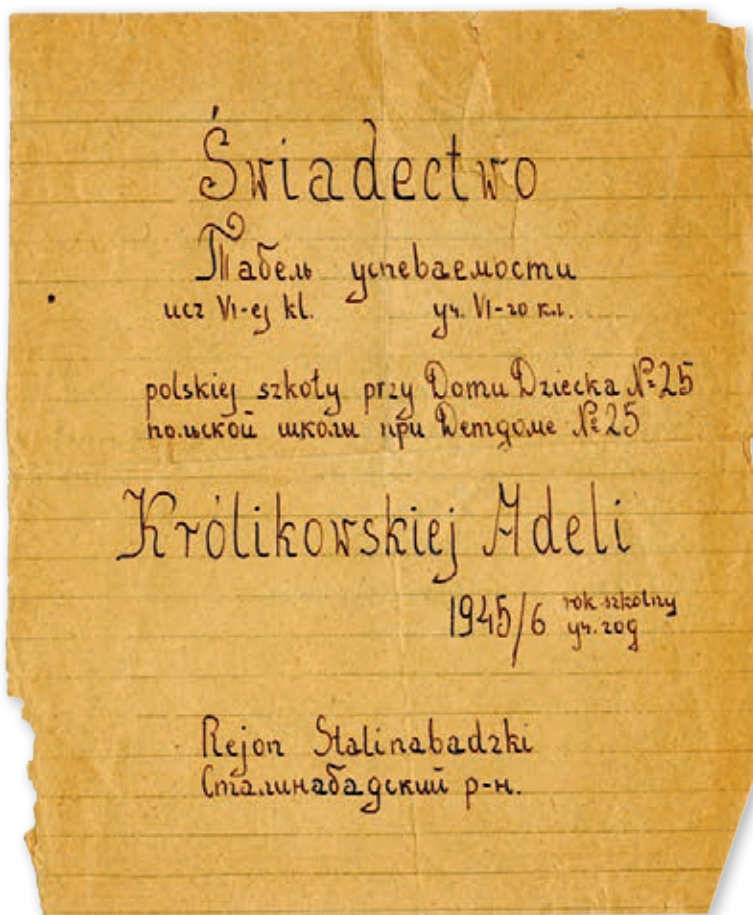 Świadectwo
Табель успеваемости
ucz VI-ej kl. уч. VI-го кл.
polskiej szkoły przy Domu Dziecka № 25
польской школы при Детдоме № 25
Królikowskiej Adeli
1945/6 rok szkolny
уч. год
Rejon Stalinabadzki
Сталинабадский р-н.